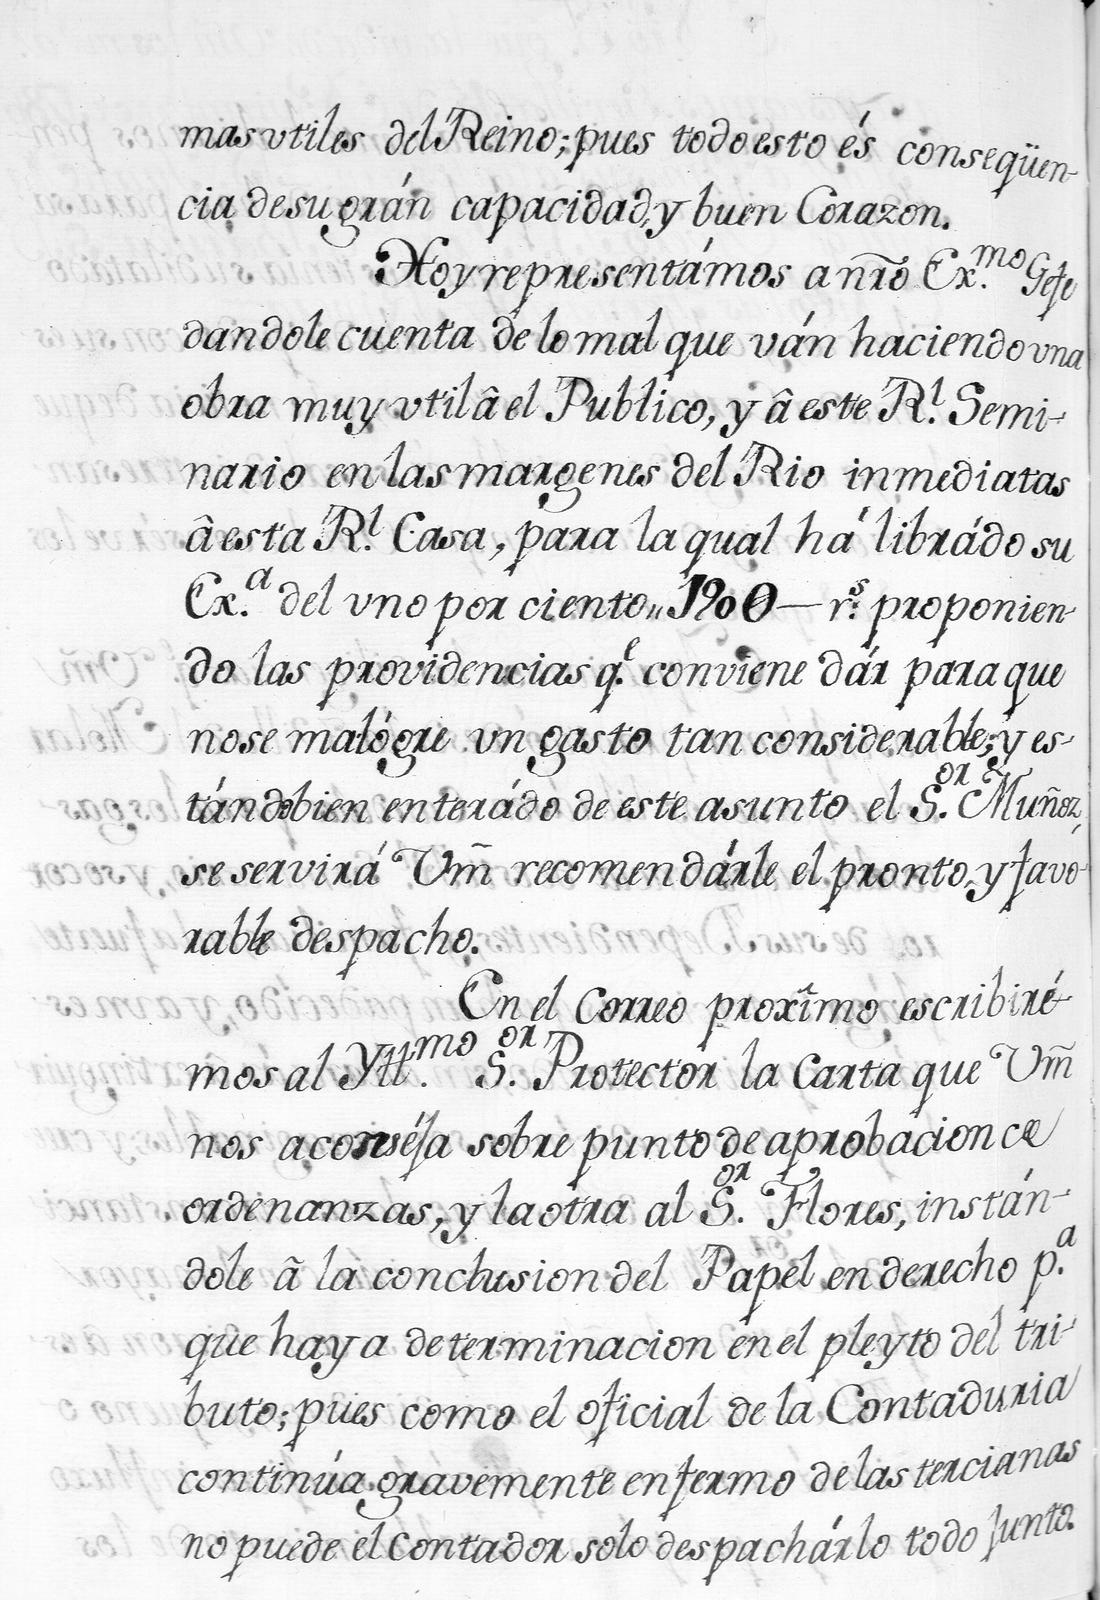 mas vtiles del Reino; pues todo esto és conseqüen-
cia de su grán capacidad, y buen Corazon.
Hoy representámos a nrõ Ex.mo Gefe
dandole cuenta de lo mal que ván haciendo vna
obra muy vtil â el Publico, y â este R.l Semi-
nario en las margenes del Rio inmediatas
â esta R.l Casa, para la qual há librádo su
Ex.a del vno por ciento,, — r.s proponien-
do las providencias q.e conviene dár para que
no se malógre vn gasto tan considerable; y es-
tándo bien enterádo de este asunto el S.or Muñoz,
se servirá Vm̃ recomendárle el pronto, y favo-
rable despacho.
En el Correo proxîmo escribiré-
mos al Yll.mo S.or Protector la Carta que Vm̃
nos aconséja sobre punto de aprobacion de
ordenanzas, y la otra al S.or Flores, instán-
dole â la conclusion del Papel en derecho p.a
que haya determinacion en el pleyto del tri-
buto; pues como el oficial de la Contaduria
continúa gravemente enfermo de las tercianas
no puede el Contador solo despachárlo todo junto.